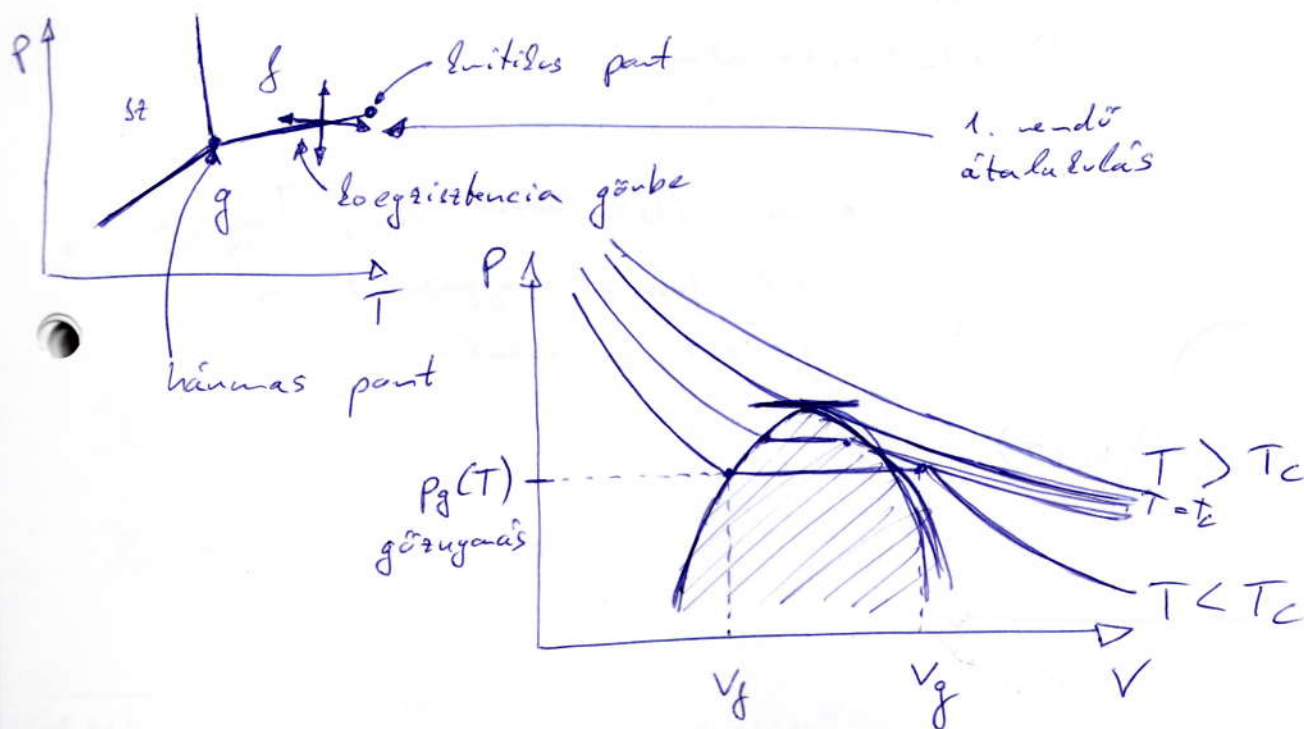 P
sz
f
kritikus pont
1. rendű
átalakulás
g
koegzisztencia görbe
T
hármas pont
P
T > Tc
T = Tc
pg(T)
gőznyomás
T < Tc
Vf
Vg
V